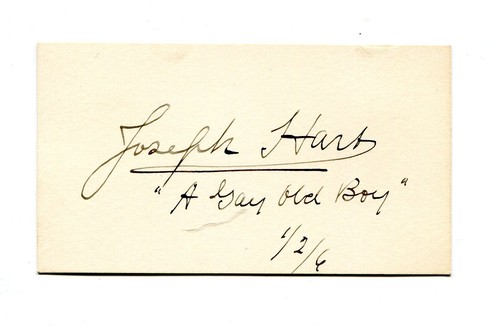 Joseph Hart
"A Gay Old Boy"
1/2/6